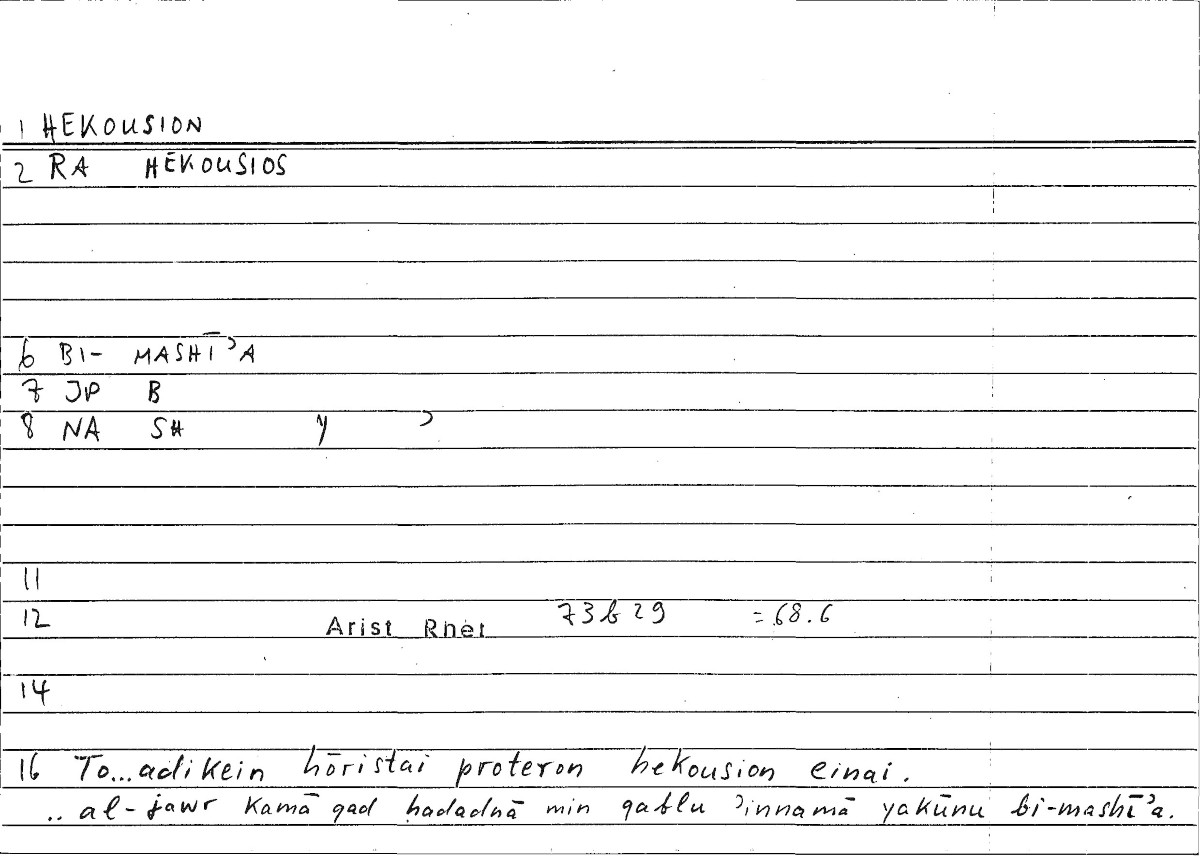 1 HEKOUSION
2 RA HEKOUSIOS
6 BI- MASHĪʾA
7 JP B
8 NA SH Y ʾ
11
12 Arist Rhet 73b29 =68.6
14
16 To...adikein hōristai proteron hekousion einai.
.. al-jawr kamā qad ḥadadnā min qablu ʾinnamā yakūnu bi-mashīʾa.